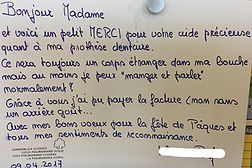 Bonjour Madame
et voici un petit MERCI pour votre aide précieuse
quant à ma prothèse dentaire.
Ce sera toujours un corps étranger dans ma bouche
mais au moins je peux "manger et parler"
normalement!
Grâce à vous j'ai pu payer la facture (mon sans
un arrière goût...
Avec mes bons voeux pour la fête de Pâques et
tous mes sentiments de reconnaissance.
LUNGENLIGA SCHWEIZ
LIGUE PULMONAIRE SUISSE
LEGA POLMONARE SVIZZERA
LIA PULMUNARA SVIZRA
09.04.2017